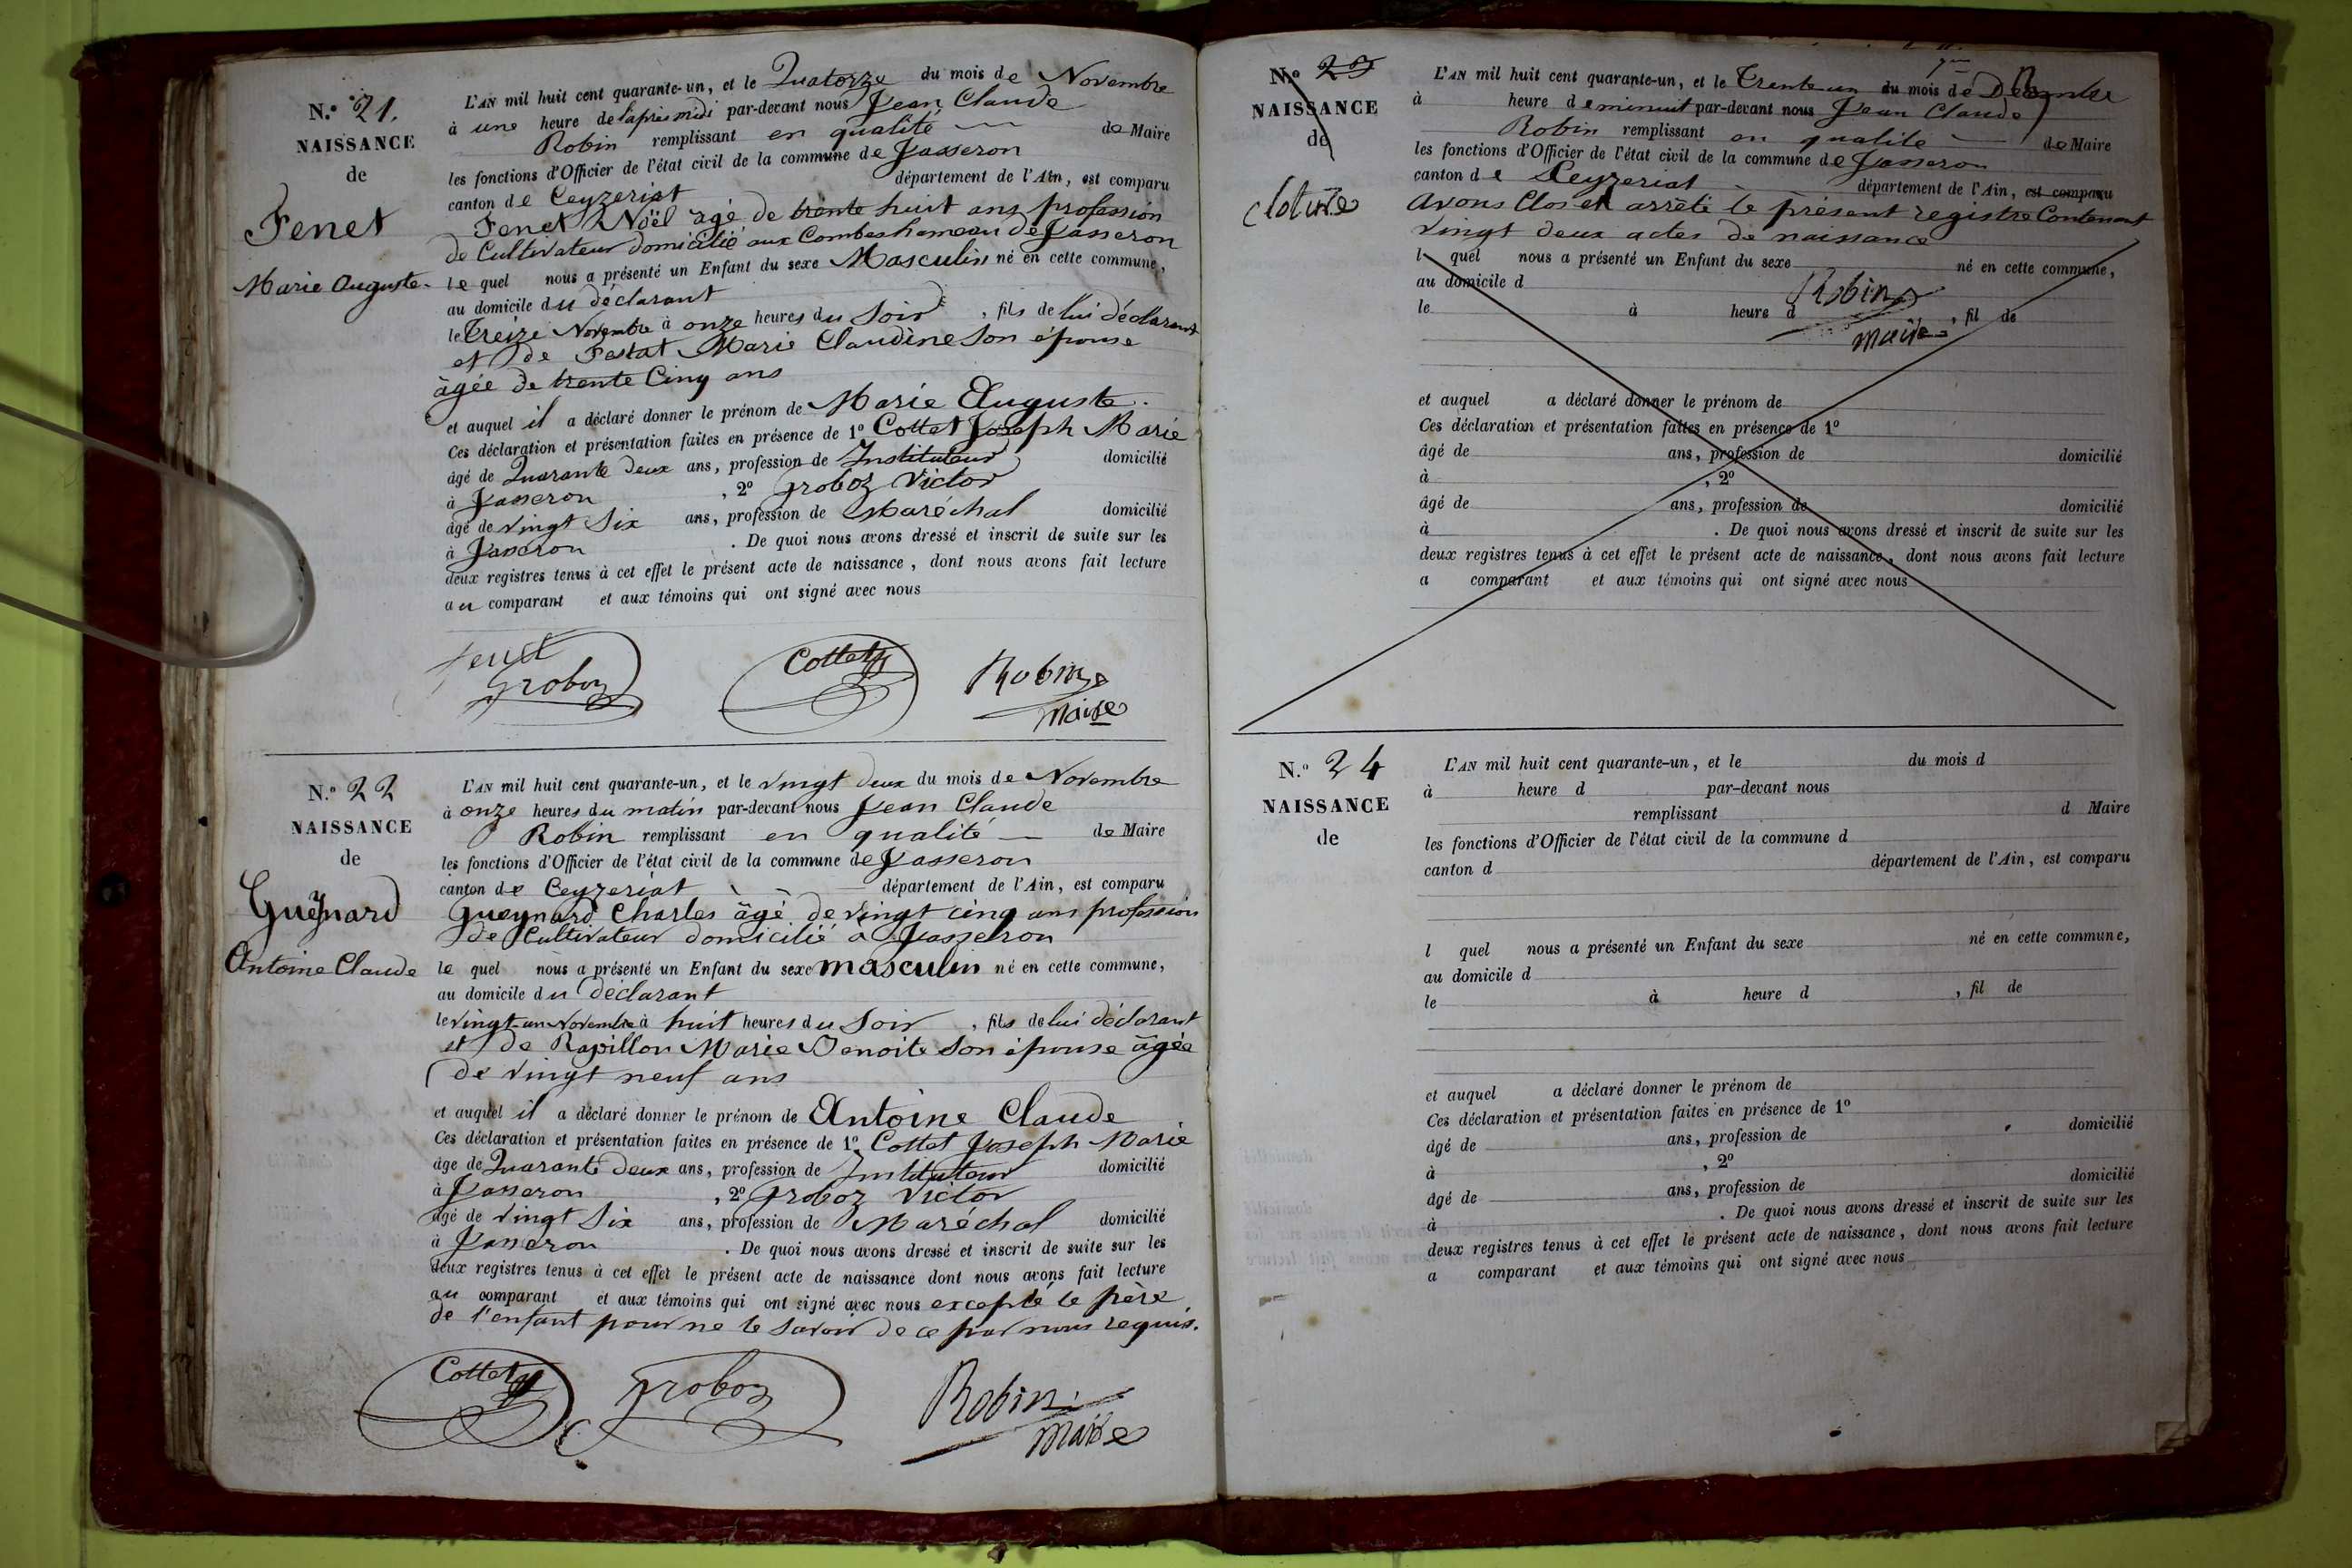 N.° 21.
NAISSANCE
de
Fenet
Marie Auguste.
L'AN mil huit cent quarante-un, et le Quatorze du mois de Novembre
à une heure de laprès midi par-devant nous Jean Claude
Robin remplissant en qualité de Maire
les fonctions d'Officier de l'état civil de la commune de Jasseron
canton de Ceyzeriat département de l'Ain, est comparu
Fenet Noël âgé de trente huit ans profession
de Cultivateur domicilié aux Combes hameau de Jasseron
le quel nous a présenté un Enfant du sexe Masculin né en cette commune,
au domicile du déclarant
le Treize Novembre à onze heures du Soir, fils de lui déclarant
et de Festat Marie Claudine Son épouse
âgée de trente Cinq ans
et auquel il a déclaré donner le prénom de Marie Auguste.
Ces déclaration et présentation faites en présence de 1° Cottet Joseph Marie
âgé de Quarante deux ans, profession de Instituteur domicilié
à Jasseron, 2° Groboz Victor
âgé de vingt Six ans, profession de Maréchal domicilié
à Jasseron. De quoi nous avons dressé et inscrit de suite sur les
deux registres tenus à cet effet le présent acte de naissance, dont nous avons fait lecture
au comparant et aux témoins qui ont signé avec nous
fenet
Groboz
Cottet
Robin
maire
N.° 22
NAISSANCE
de
Gueynard
Antoine Claude
L'AN mil huit cent quarante-un, et le vingt deux du mois de Novembre
à onze heures du matin par-devant nous Jean Claude
Robin remplissant en qualité de Maire
les fonctions d'Officier de l'état civil de la commune de Jasseron
canton de Ceyzeriat département de l'Ain, est comparu
Gueynard Charles âgé de vingt cinq ans profession
de Cultivateur domicilié à Jasseron
le quel nous a présenté un Enfant du sexe masculin né en cette commune,
au domicile du déclarant
le vingt-un Novembre à huit heures du Soir, fils de lui déclarant
et de Rapillon Marie Benoite Son épouse âgée
de vingt neuf ans
et auquel il a déclaré donner le prénom de Antoine Claude
Ces déclaration et présentation faites en présence de 1°. Cottet Joseph Marie
âgé de Quarante deux ans, profession de Instituteur domicilié
à Jasseron, 2° Groboz Victor
âgé de vingt Six ans, profession de Maréchal domicilié
à Jasseron. De quoi nous avons dressé et inscrit de suite sur les
deux registres tenus à cet effet le présent acte de naissance dont nous avons fait lecture
au comparant et aux témoins qui ont signé avec nous excepté le père
de l'enfant pour ne le savoir de ce par nous requis.
Cottet
Groboz
Robin
maire
N.° 23
NAISSANCE
de
cloture
L'AN mil huit cent quarante-un, et le Trente un du mois de Décembre
à heure de minuit par-devant nous Jean Claude
Robin remplissant en qualité de Maire
les fonctions d'Officier de l'état civil de la commune de Jasseron
canton de Ceyzeriat département de l'Ain, est comparu
avons Clos et arrêté le présent registre Contenant
vingt deux actes de naissance
l quel nous a présenté un Enfant du sexe né en cette commune,
au domicile d
Robin
le à heure d, fil de
maire
et auquel a déclaré donner le prénom de
Ces déclaration et présentation faites en présence de 1°
âgé de ans, profession de domicilié
à, 2°
âgé de ans, profession de domicilié
à. De quoi nous avons dressé et inscrit de suite sur les
deux registres tenus à cet effet le présent acte de naissance, dont nous avons fait lecture
a comparant et aux témoins qui ont signé avec nous
N.° 24
NAISSANCE
de
L'AN mil huit cent quarante-un, et le du mois d
à heure d par-devant nous
remplissant d Maire
les fonctions d'Officier de l'état civil de la commune d
canton d département de l'Ain, est comparu
l quel nous a présenté un Enfant du sexe né en cette commune,
au domicile d
le à heure d, fil de
et auquel a déclaré donner le prénom de
Ces déclaration et présentation faites en présence de 1°
âgé de ans, profession de domicilié
à, 2°
âgé de ans, profession de domicilié
à. De quoi nous avons dressé et inscrit de suite sur les
deux registres tenus à cet effet le présent acte de naissance, dont nous avons fait lecture
a comparant et aux témoins qui ont signé avec nous